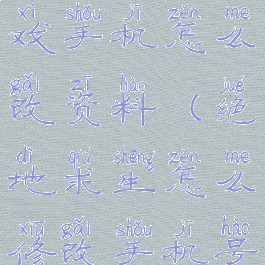 xì shǒu jī zěn me
戏手机怎么
gǎi zī hào jué
改资料（绝
dì qiú shēng zěn me
地求生怎么
xiū gǎi shǒu jī hào
修改手机号